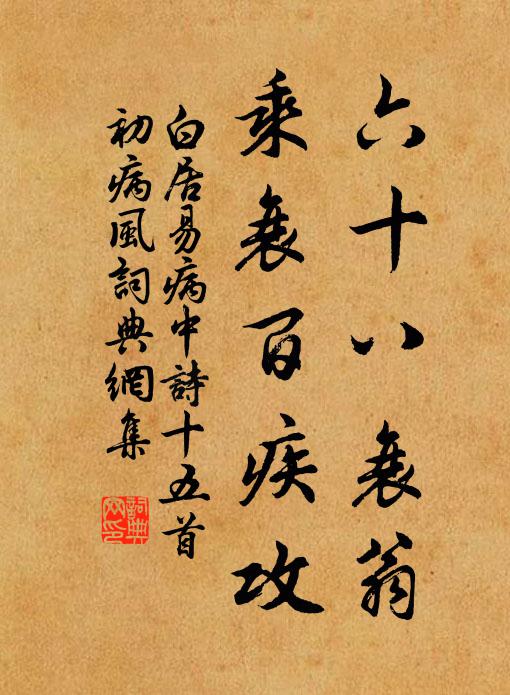 六十八衰翁
乘衰百疾攻
白居易病中詩十五首
初病風詞典網集
詞典網印